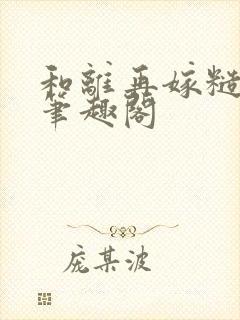 和離再嫁糙
筆趣閣
庞某波